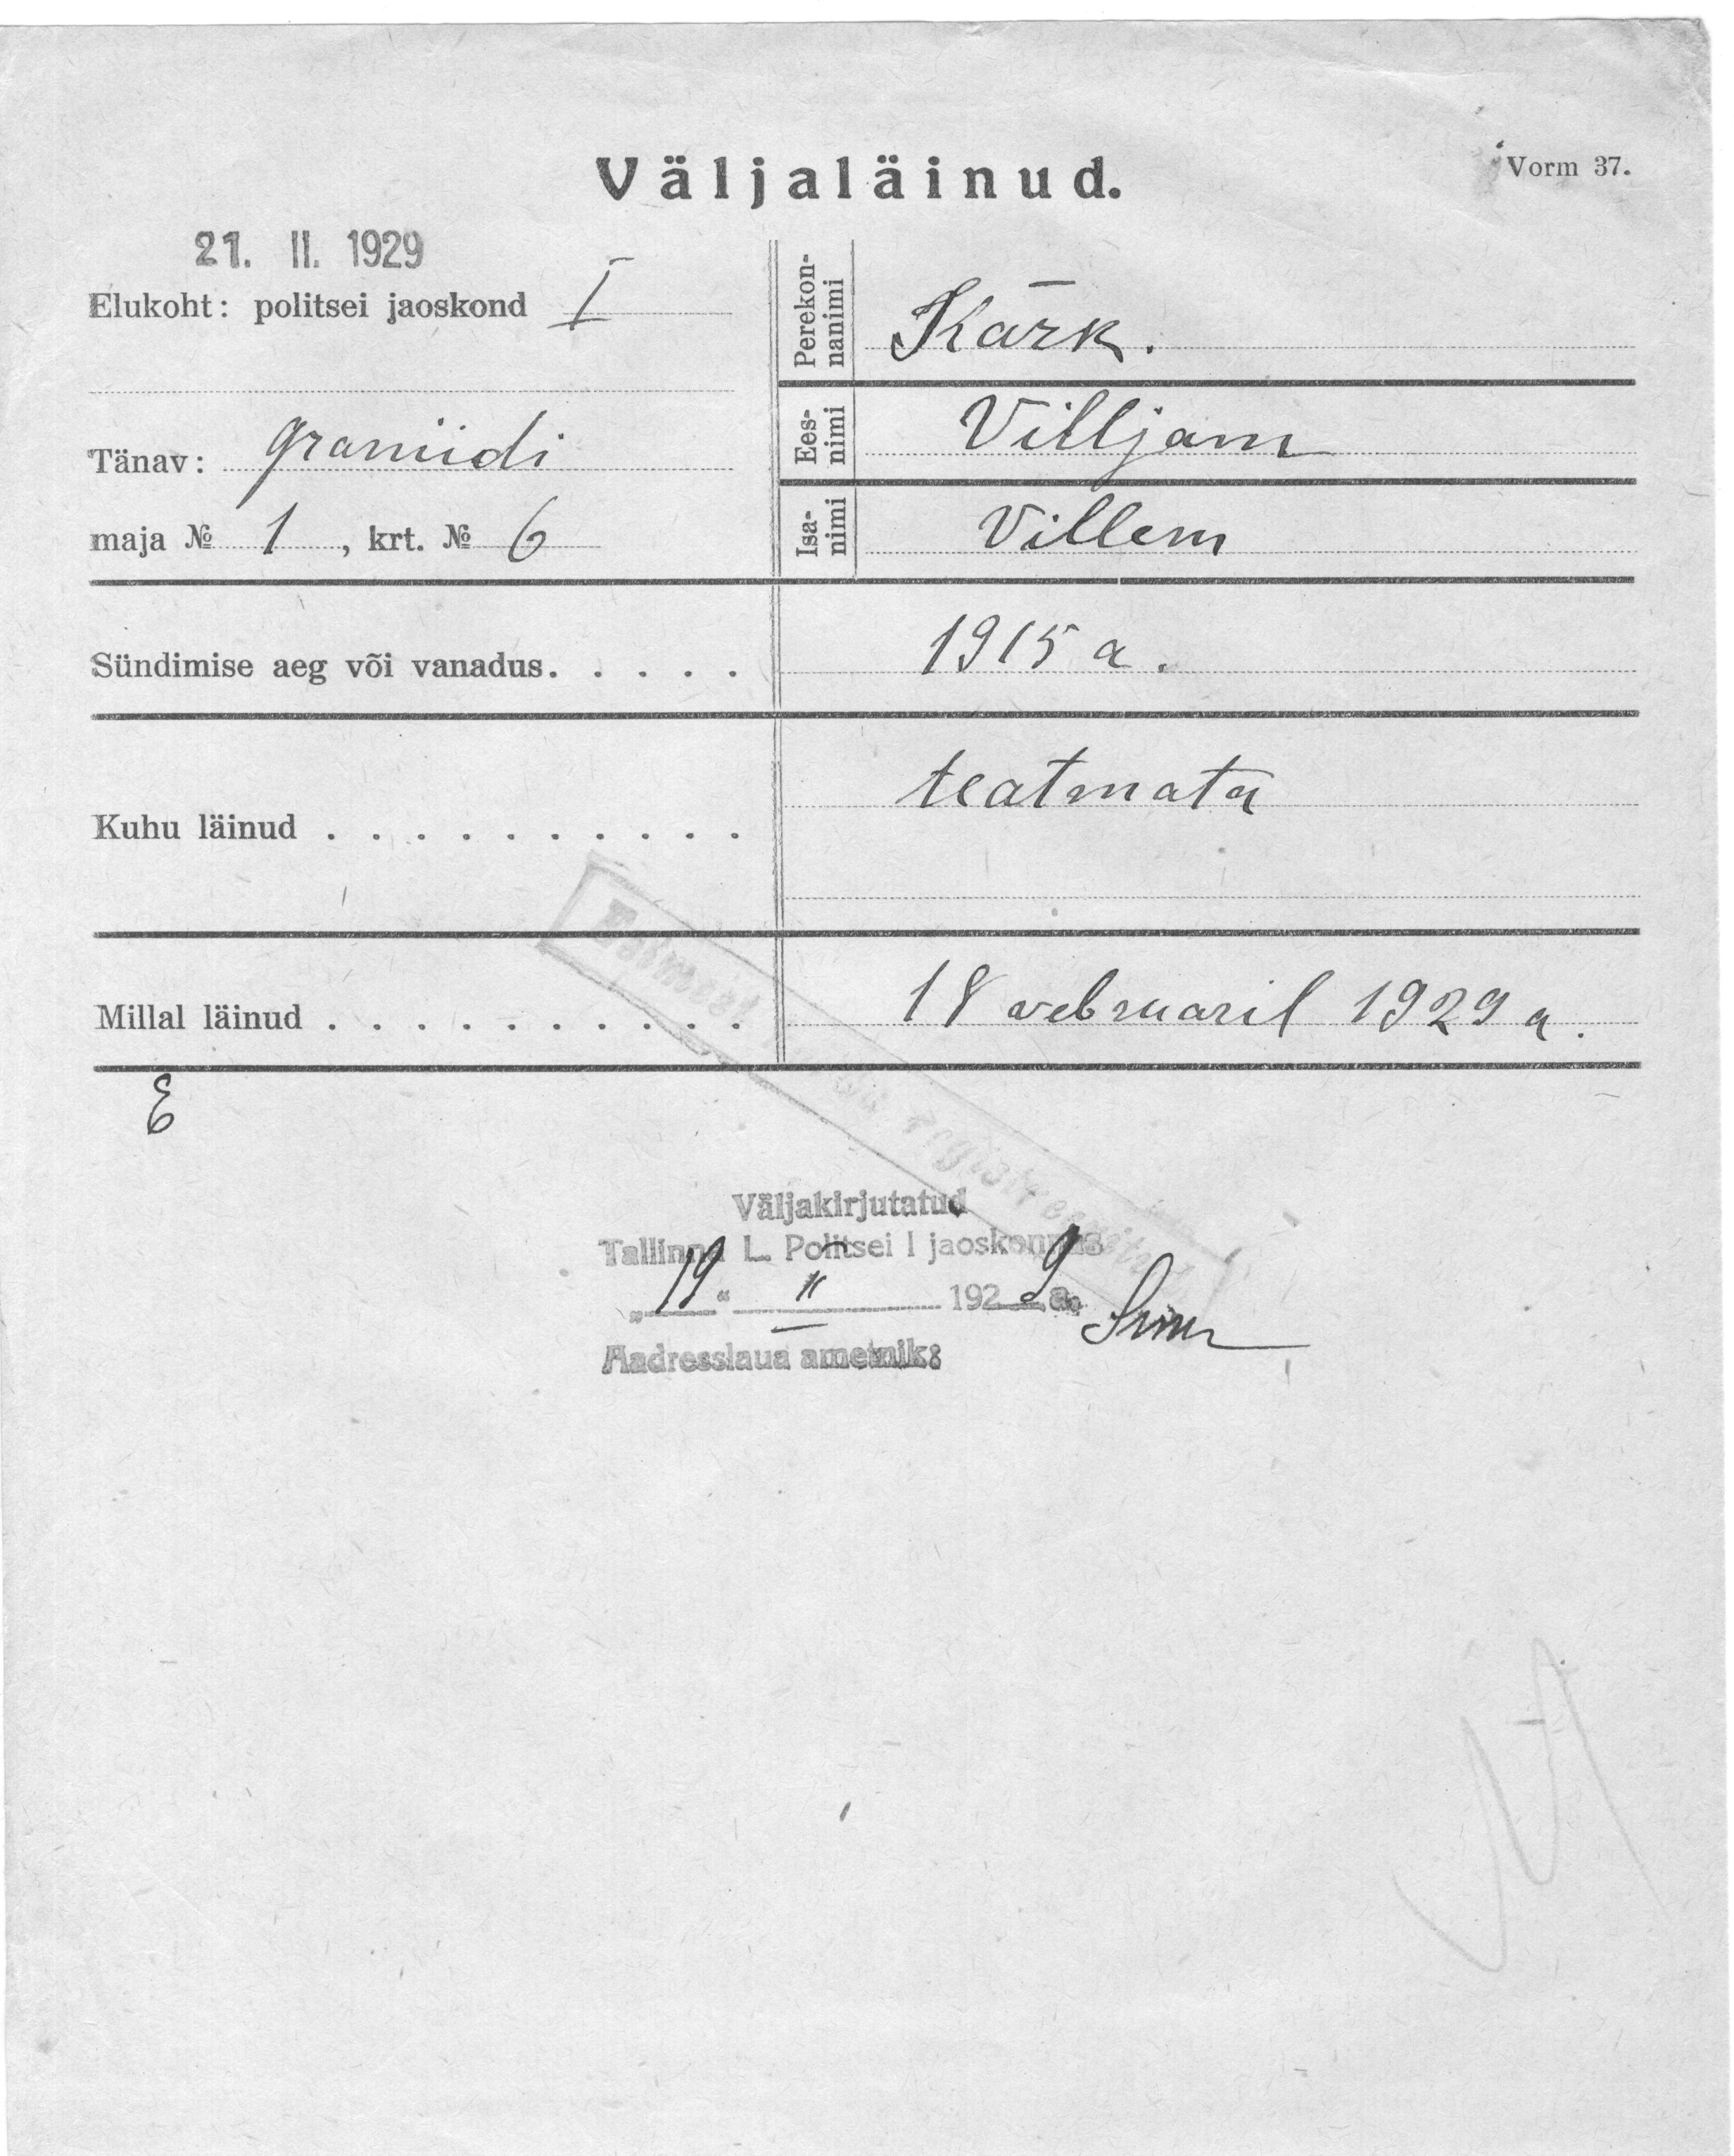 Väljaläinud.
Vorm 37.
21. II. 1929
Elukoht: politsei jaoskond I
Tänav: Graniidi
maja № 1, krt. № 6
Perekon-
nanimi
Kärk.
Ees-
nimi
Villjam
Isa-
nimi
Villem
Sündimise aeg või vanadus. . . . . 1915 a.
Kuhu läinud . . . . . . . . . . teatmata
Millal läinud . . . . . . . . . . 18 vebruaril 1929 a.
E
Väljakirjutatud
Tallinna L. Politsei I jaoskonnas
„19“ II 1929 a.
Aadresslaua ametnik: